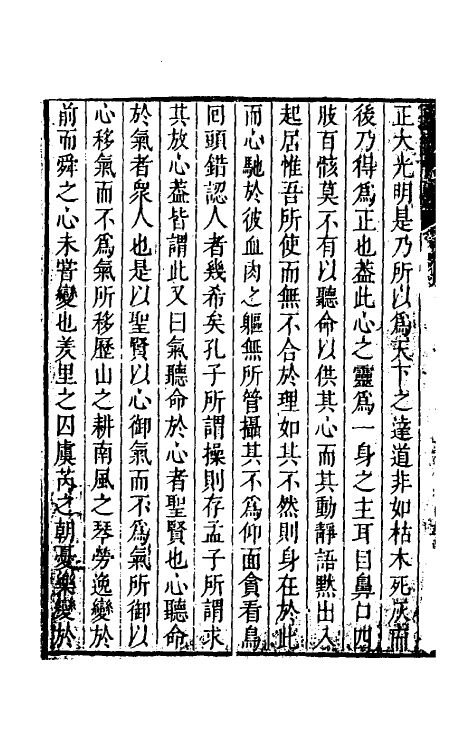 正大光明是乃所以爲天下之達道非如枯木死灰而
後乃得爲正也蓋此心之靈爲一身之主耳目鼻口四
肢百骸莫不有以聽命以供其心而其動靜語黙出入
起居惟吾所使而無不合於理如其不然則身在於此
而心馳於彼血肉之軀無所管攝其不爲仰面貪看鳥
回頭錯認人者幾希矣孔子所謂操則存孟子所謂求
其放心葢皆謂此又曰氣聽命於心者聖賢也心聽命
於氣者衆人也是以聖賢以心御氣而不爲氣所御以
心移氣而不爲氣所移歷山之耕南風之琴勞逸變於
前而舜之心未甞變也羑里之囚虞芮之朝憂樂變於